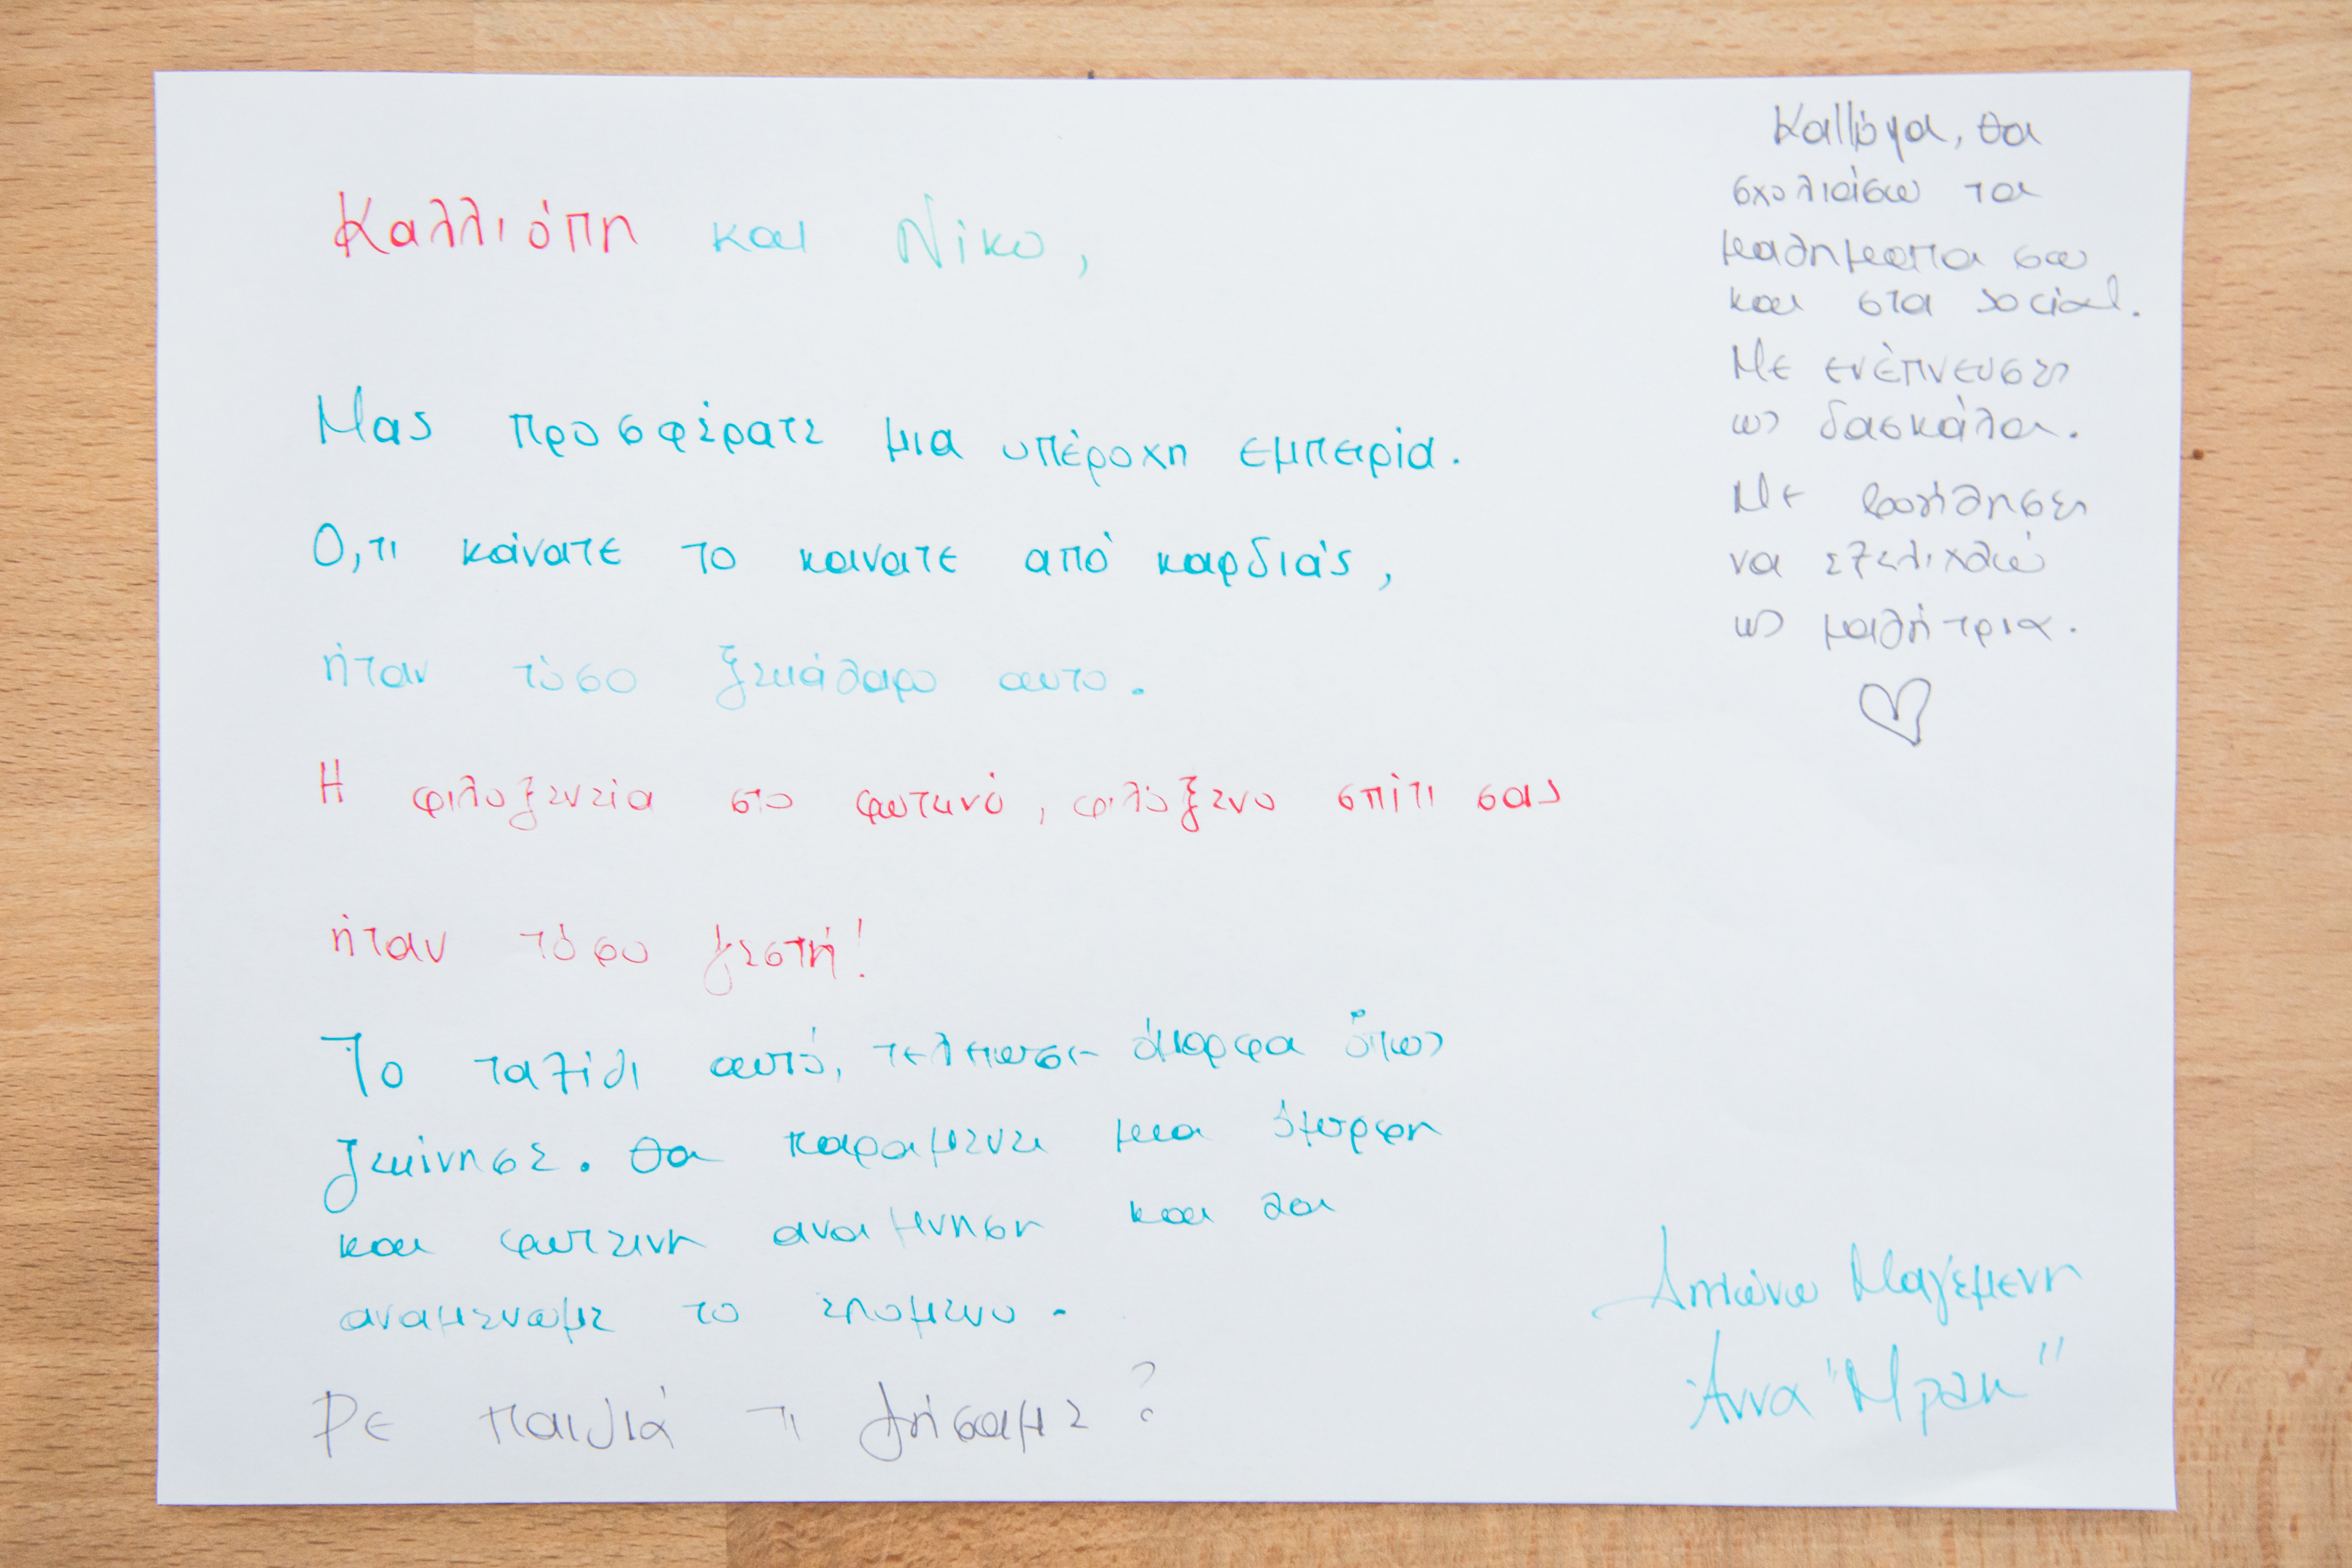 Καλλιόπη και Νίκο,
Μας προσφέρατε μια υπέροχη εμπειρία.
Ο,τι κάνατε το κανατε από καρδιάς,
ήταν τόσο ξεκάθαρο αυτο.
Η φιλοξενεία στο φωτεινό, φιλόξενο σπίτι σας
ήταν τόσο ζεστή!
Το ταξίδι αυτό, τελειωσε όμορφα όπως
ξεκίνησε. Θα παραμενει μια όμορφη
και φωτεινη αναμνηση και θα
αναμενουμε το επομενο.
Ρε παιδιά τι ζήσαμε?
θα
σχολιάσω τα
μαθηματα σου
και στα social.
Με ενέπνευσες
ως δασκάλα.
Με βοήθησες
να εξελιχθώ
ως μαθήτρια.
Αντώνω Μαγεμενη
Άννα